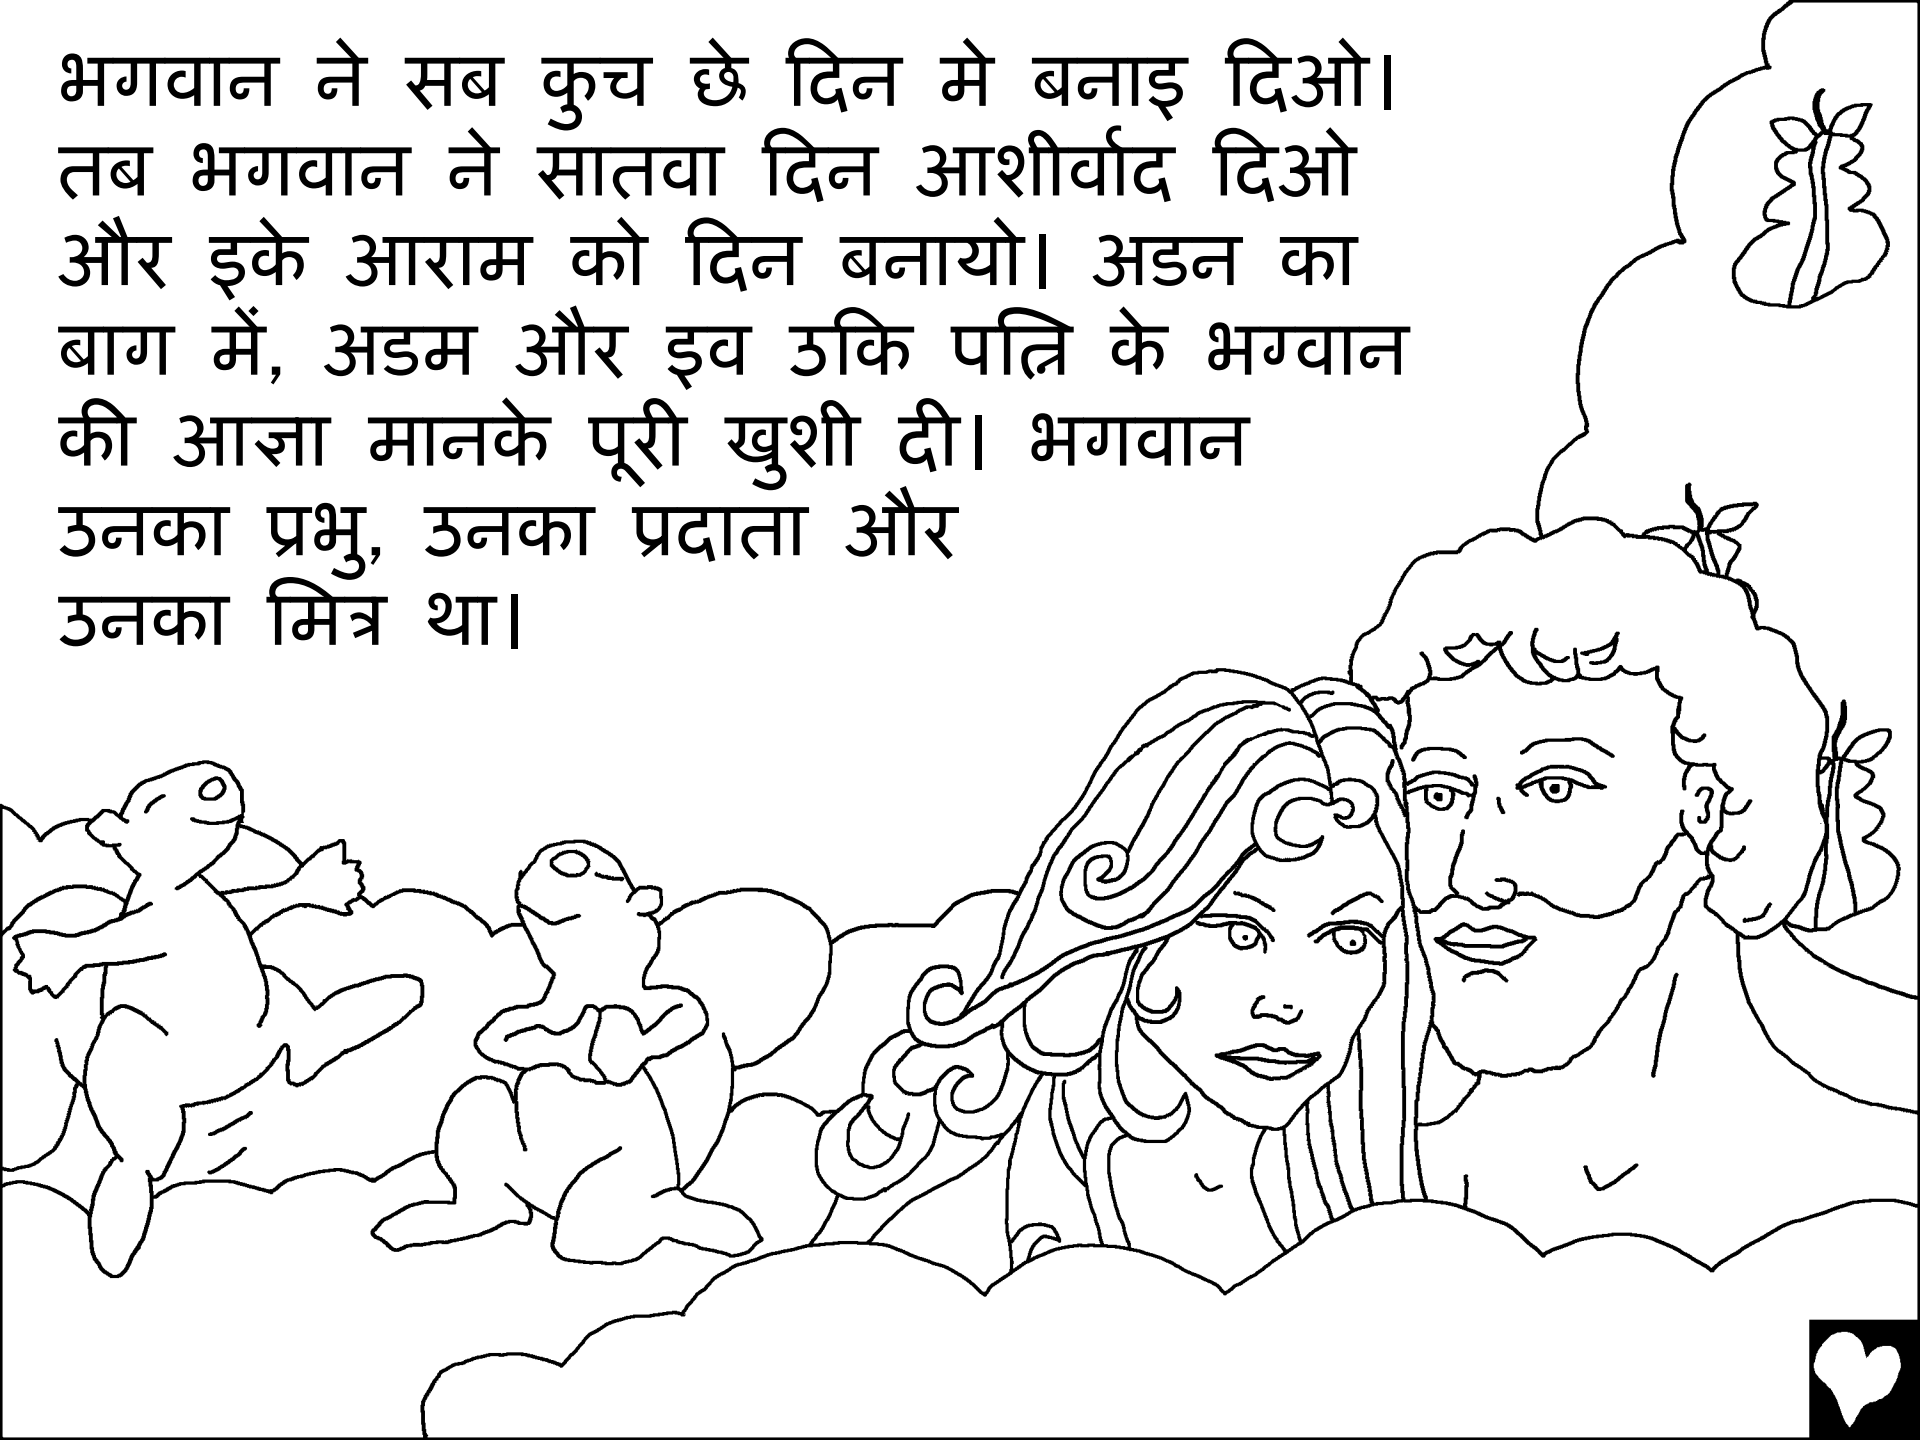 भगवान ने सब कुच छे दिन मे बनाइ दिओ।
तब भगवान ने सातवा दिन आशीर्वाद दिओ
और इके आराम को दिन बनायो। अडन का
बाग में, अडम और इव उकि पत्नि के भग्वान
की आज्ञा मानके पूरी खुशी दी। भगवान
उनका प्रभु, उनका प्रदाता और
उनका मित्र था।